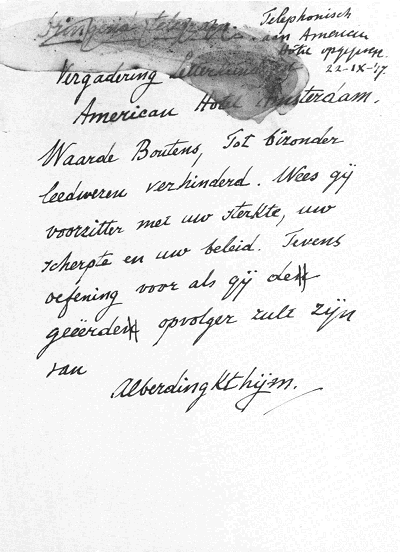 Telephonisch
aan American
Hotel opgeven.
22-IX-'17.
Dringend telegram
Vergadering
American Hotel Amsterdam.
Waarde Boutens, Tot bizonder
leedwezen verhinderd. Wees gij
voorzitter met uw sterkte, uw
scherpte en uw beleid. Tevens
oefening voor als gij de
geëerde opvolger zult zijn
van
Alberdingk Thijm.